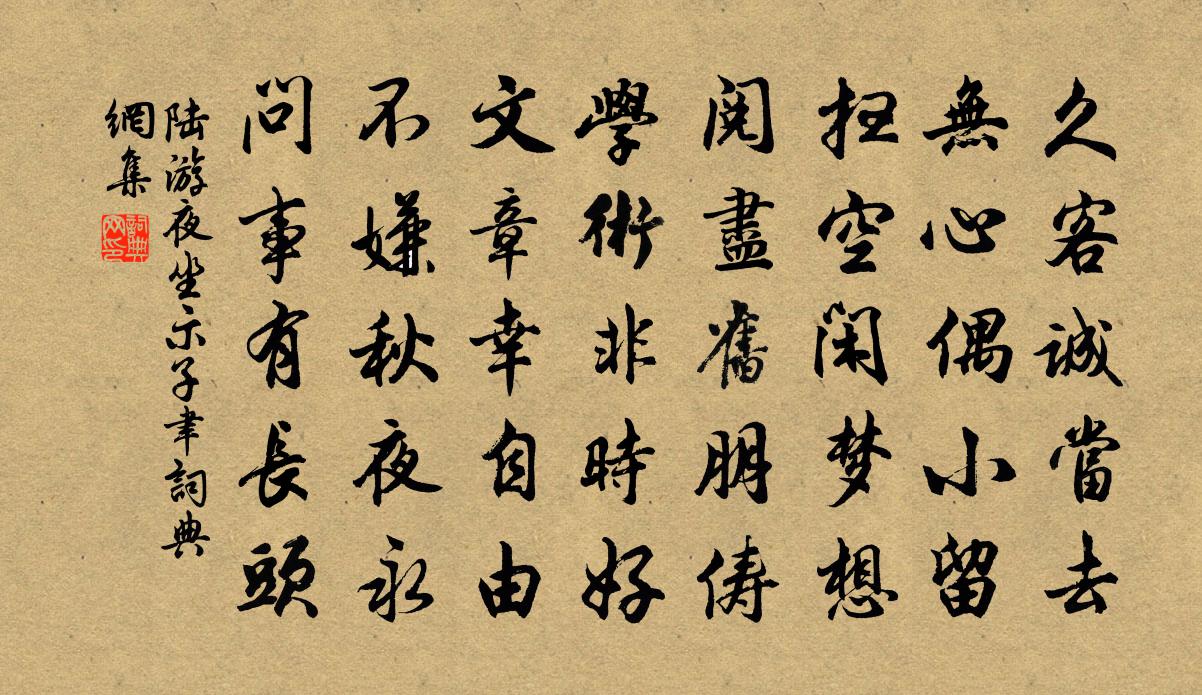 久客誠當去
無心偶小留
扫空閑梦想
閱盡舊朋俦
學術非時好
文章幸自由
不嫌秋夜永
問事有長頭
陆游夜坐示子聿詞典
網集
詞典
网印